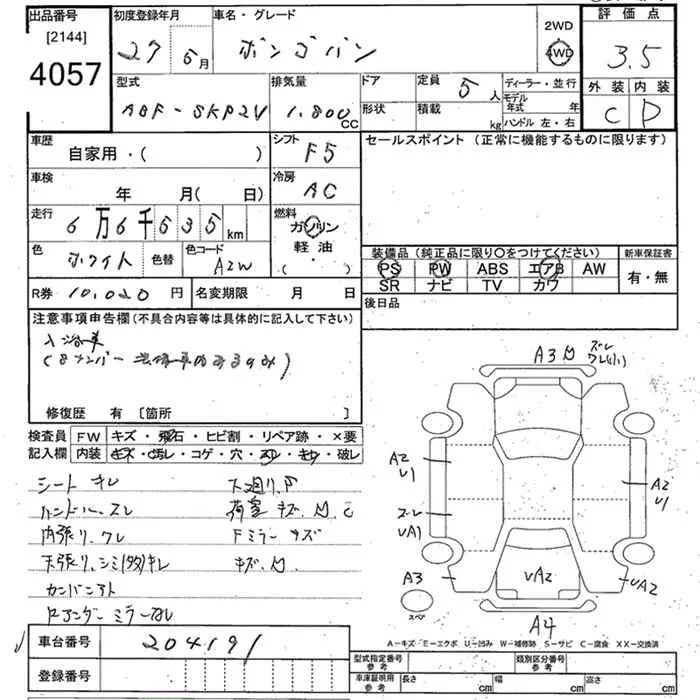 出品番号
[2144]
4057
初度登録年月
27 6月
車名・グレード
ボンゴバン
2WD
4WD
評価点
3.5
外装 内装
C D
型式
ABF-SKP2V
排気量
1.800CC
ドア
形状
定員
5人
積載
kg
ディーラー・並行
モデル年式 年
ハンドル 左・右
車歴
自家用・( )
シフト
F5
セールスポイント (正常に機能するものに限ります)
車検
年 月( 日)
冷房
AC
走行
6万6千535km
燃料
ガソリン
軽油
・( )
色
ホワイト
色替
色コード
A2W
装備品 (純正品に限り○をつけてください)
PS PW ABS エアB AW
SR ナビ TV カワ
新車保証書
有・無
R券 10,020円
名変期限 月 日
後日品
注意事項申告欄 (不具合内容等は具体的に記入して下さい)
修復歴 有 [箇所 ]
検査員記入欄
FW キズ・飛石・ヒビ割・リペア跡・×要
内装 キズ・汚れ・コゲ・穴・スレ・キレ・破レ
シート キレ
ハンドル、スレ
内張り、ワレ
天張り、シミ(多)キレ
荷室 キズ、凹、C
Fミラー キズ
キズ、凹
A3 凹
ズレ
ワレ(小)
A2
U1
ズレ
UA1
A3
スペア
A2
U1
UA2
UA2
A4
A-キズ E-エクボ U-凹み W-補修跡 S-サビ C-腐食 XX-交換済
車台番号
204191
登録番号
型式指定番号 参考
類別区分番号 参考
車庫証明用 参考
長さ cm
幅 cm
高さ cm